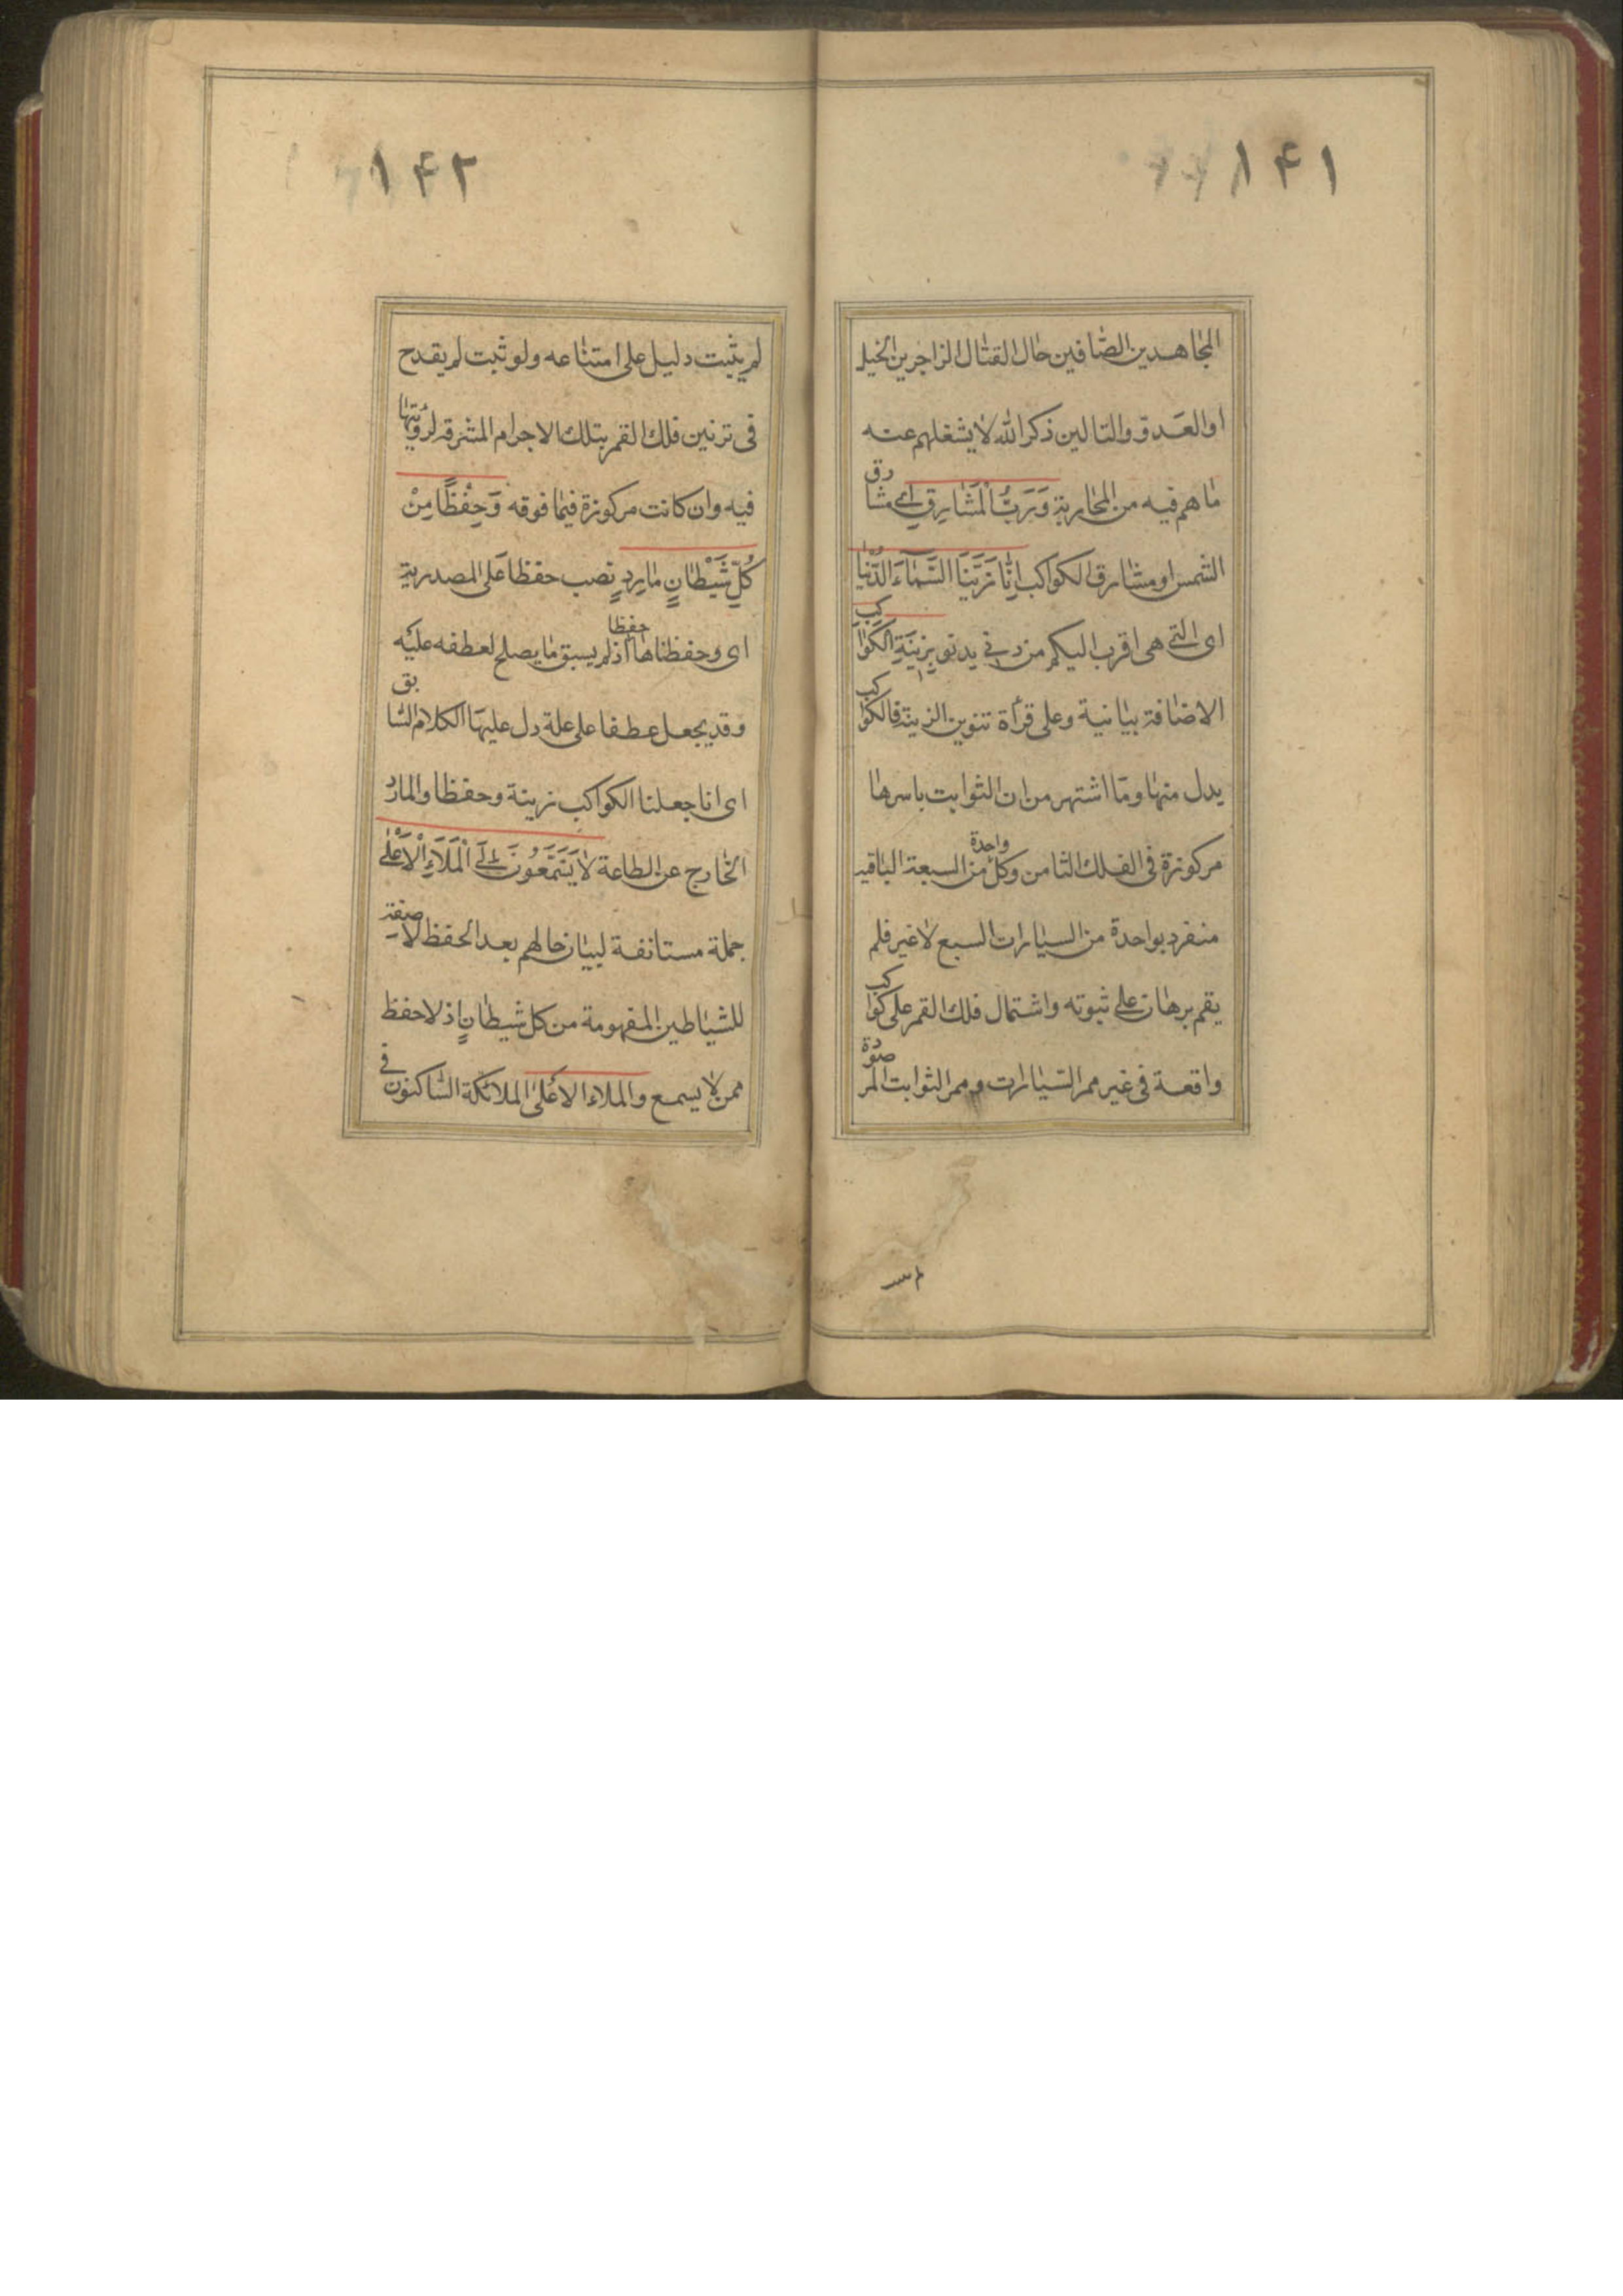 ١٤١
المجاهدين الصافين حال القتال الزاجرين الخيل
او العدو والتالين ذكر الله لا يشغلهم عنه
ما هم فيه من المحاربة وَرَبُّ الْمَشَارِقِ اى مشارق
الشمس او مشارق الكواكب اِنَّا زَيَّنَّا السَّمَآءَ الدُّنْيَا
اى التى هى اقرب اليكم من دنى يدنو بِزِينَةِ الْكَوَاكِبِ
الاضافة بيانية وعلى قرأة تنوين الزينة فالكواكب
بدل منها وما اشتهر من ان الثوابت باسرها
مركوزة فى الفلك الثامن وكل واحدة من السبعة الباقية
منفرد بواحدة من السيارات السبع لا غير فلم
يقم برهان على ثبوته واشتمال فلك القمر على كواكب
واقعة فى غير ممر السيارات وممر الثوابت المرصودة
١٤٢
لم يثبت دليل على امتناعه ولو ثبت لم يقدح
فى تزيين فلك القمر بتلك الاجرام المشرقه لرؤيتها
فيه وان كانت مركوزة فيما فوقه وَحِفْظًا مِنْ
كُلِّ شَيْطَانٍ مَارِدٍ نصب حفظا على المصدرية
اى وحفظناها حفظا اذ لم يسبق ما يصلح لعطفه عليه
وقد يجعل عطفا على علة دل عليها الكلام السابق
اى انا جعلنا الكواكب زينة وحفظا والمارد
الخارج عن الطاعة لَا يَسَّمَّعُونَ اِلَى الْمَلَاءِ الْاَعْلَى
جملة مستانفة لبيان حالهم بعد الحفظ لا صفة
للشياطين المفهومة من كل شيطانٍ اذ لا حفظ
ممن لا يسمع والملاء الاعلى الملائكة الساكنون فى